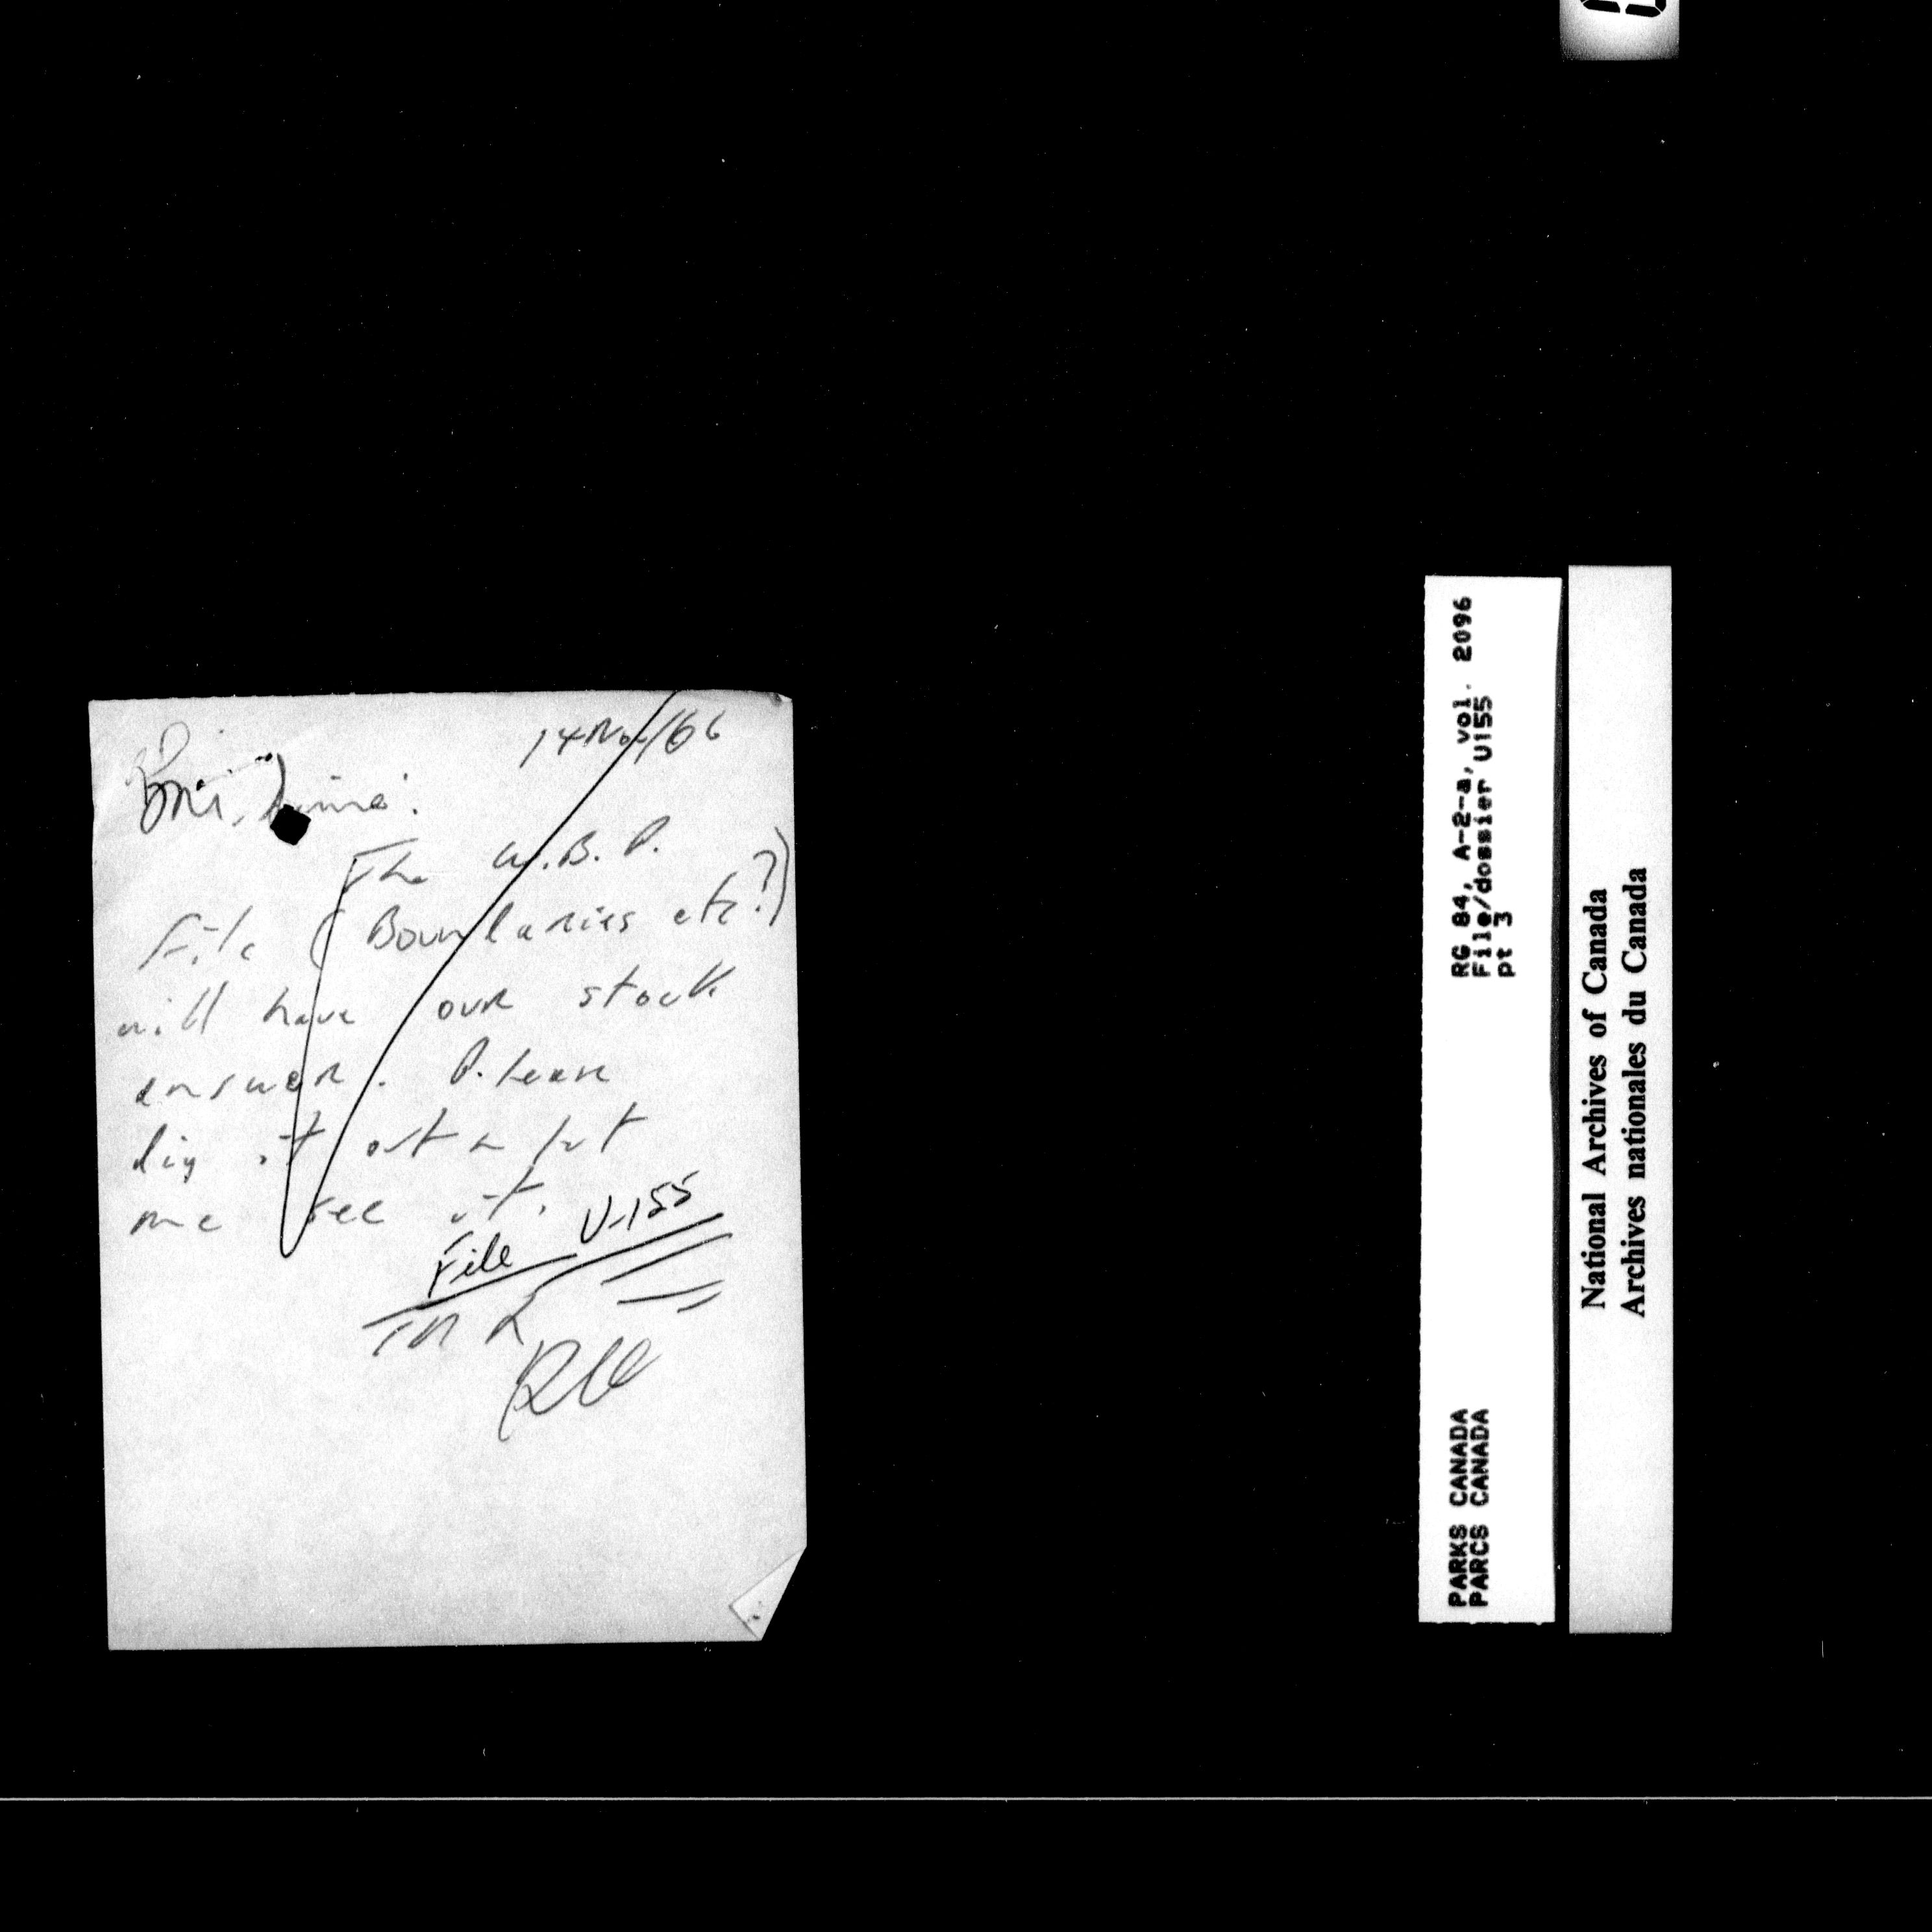 14 Nov/66
Mr.
The W.B.P.
File (Boundaries etc?)
will have our stock
answer. Please
dig it out & let
me see it.
File U-155
RG 84, A-2-a, vol. 2096
File/dossier U155
pt 3
PARKS CANADA
PARCS CANADA
National Archives of Canada
Archives nationales du Canada